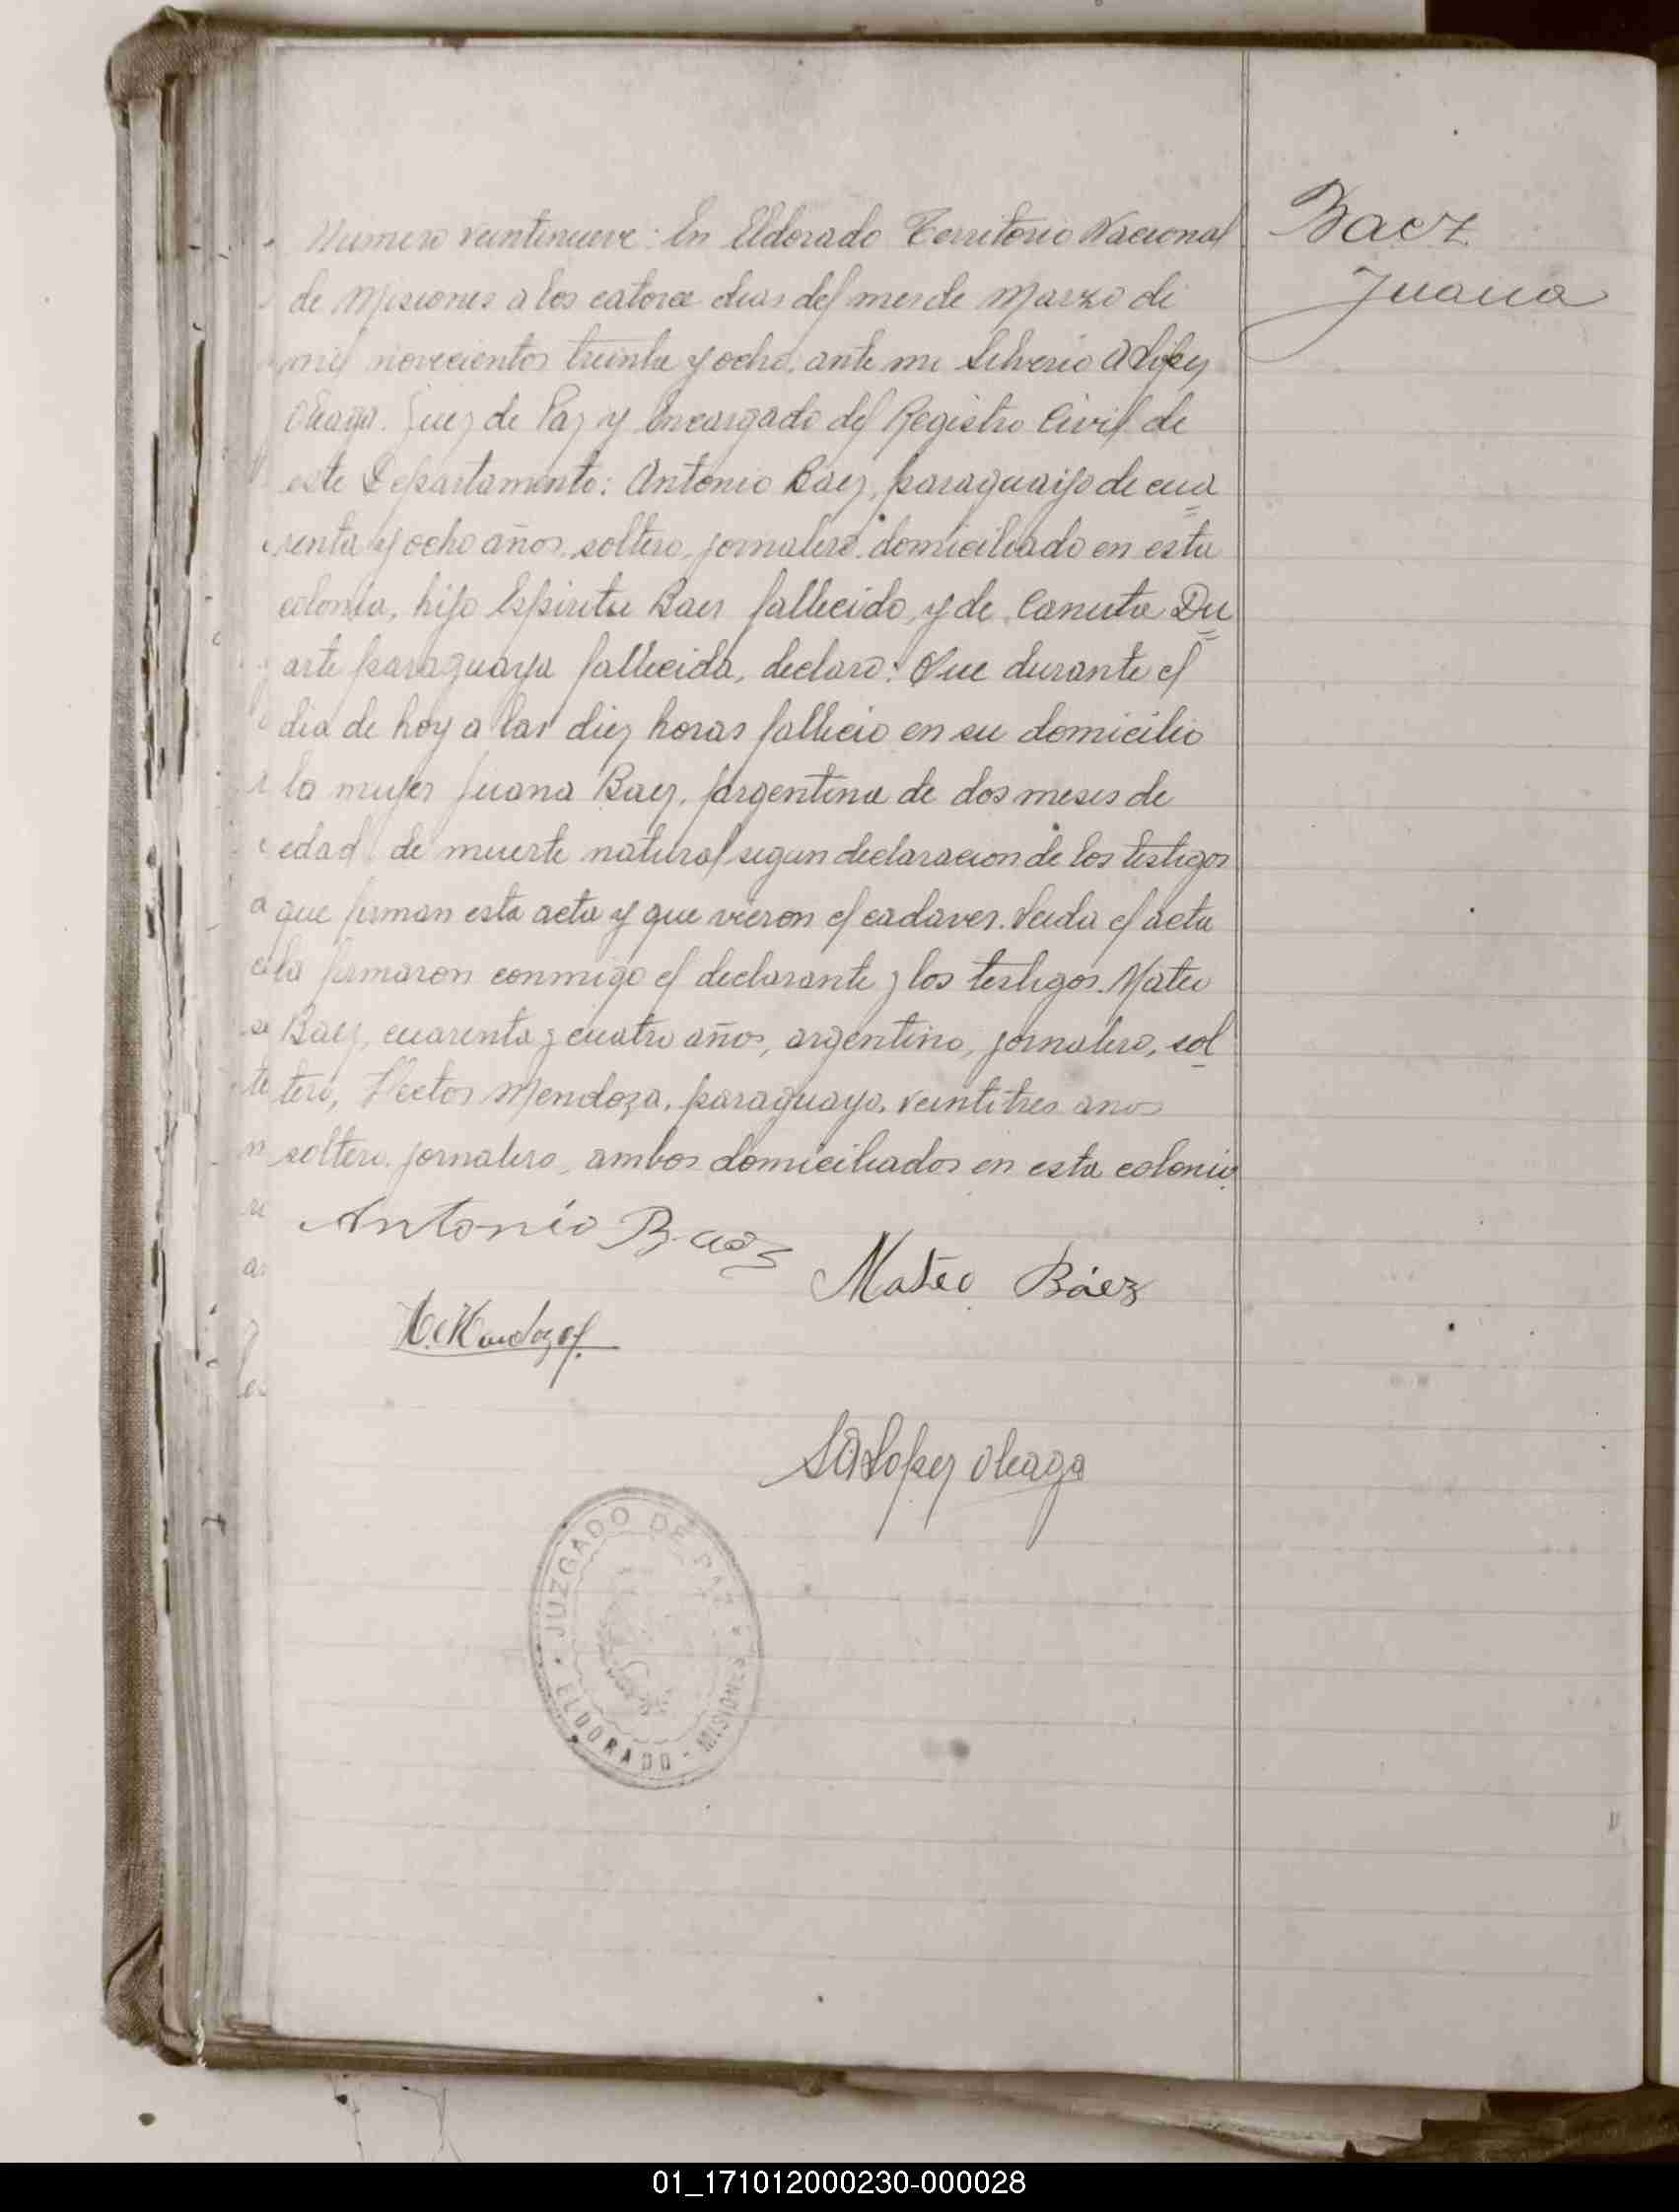 Baez
Juana
Numero veintinueve: En Eldorado Territorio Nacional
de Misiones a los catorce dias del mes de Marzo de
mil novecientos treinta y ocho, ante mi Silverio A Lopez
Oleaga. Juez de Paz y Encargado del Registro Civil de
este Departamento: Antonio Baez, paraguayo de cua
renta y ocho años, soltero, jornalero, domiciliado en esta
colonia, hijo Espiritu Baez fallecido, y de Canuta Du
arte paraguaya fallecida, declaro: Que durante el
dia de hoy a las diez horas fallecio en su domicilio
la mujer Juana Baez, argentina de dos meses de
edad, de muerte natural segun declaracion de los testigos
que firman esta acta y que vieron el cadaver. Leida el acta
la firmaron conmigo el declarante y los testigos. Mateo
Baez, cuarenta y cuatro años, argentino, jornalero, sol
tero, Hector Mendoza, paraguayo, veintitres anos
soltero, jornalero, ambos domiciliados en esta colonia
Antonio Baez
Mateo Báez
H. Mendoza
SALopez Oleaga
JUZGADO DE PAZ
ELDORADO - MISIONES
01_171012000230-000028